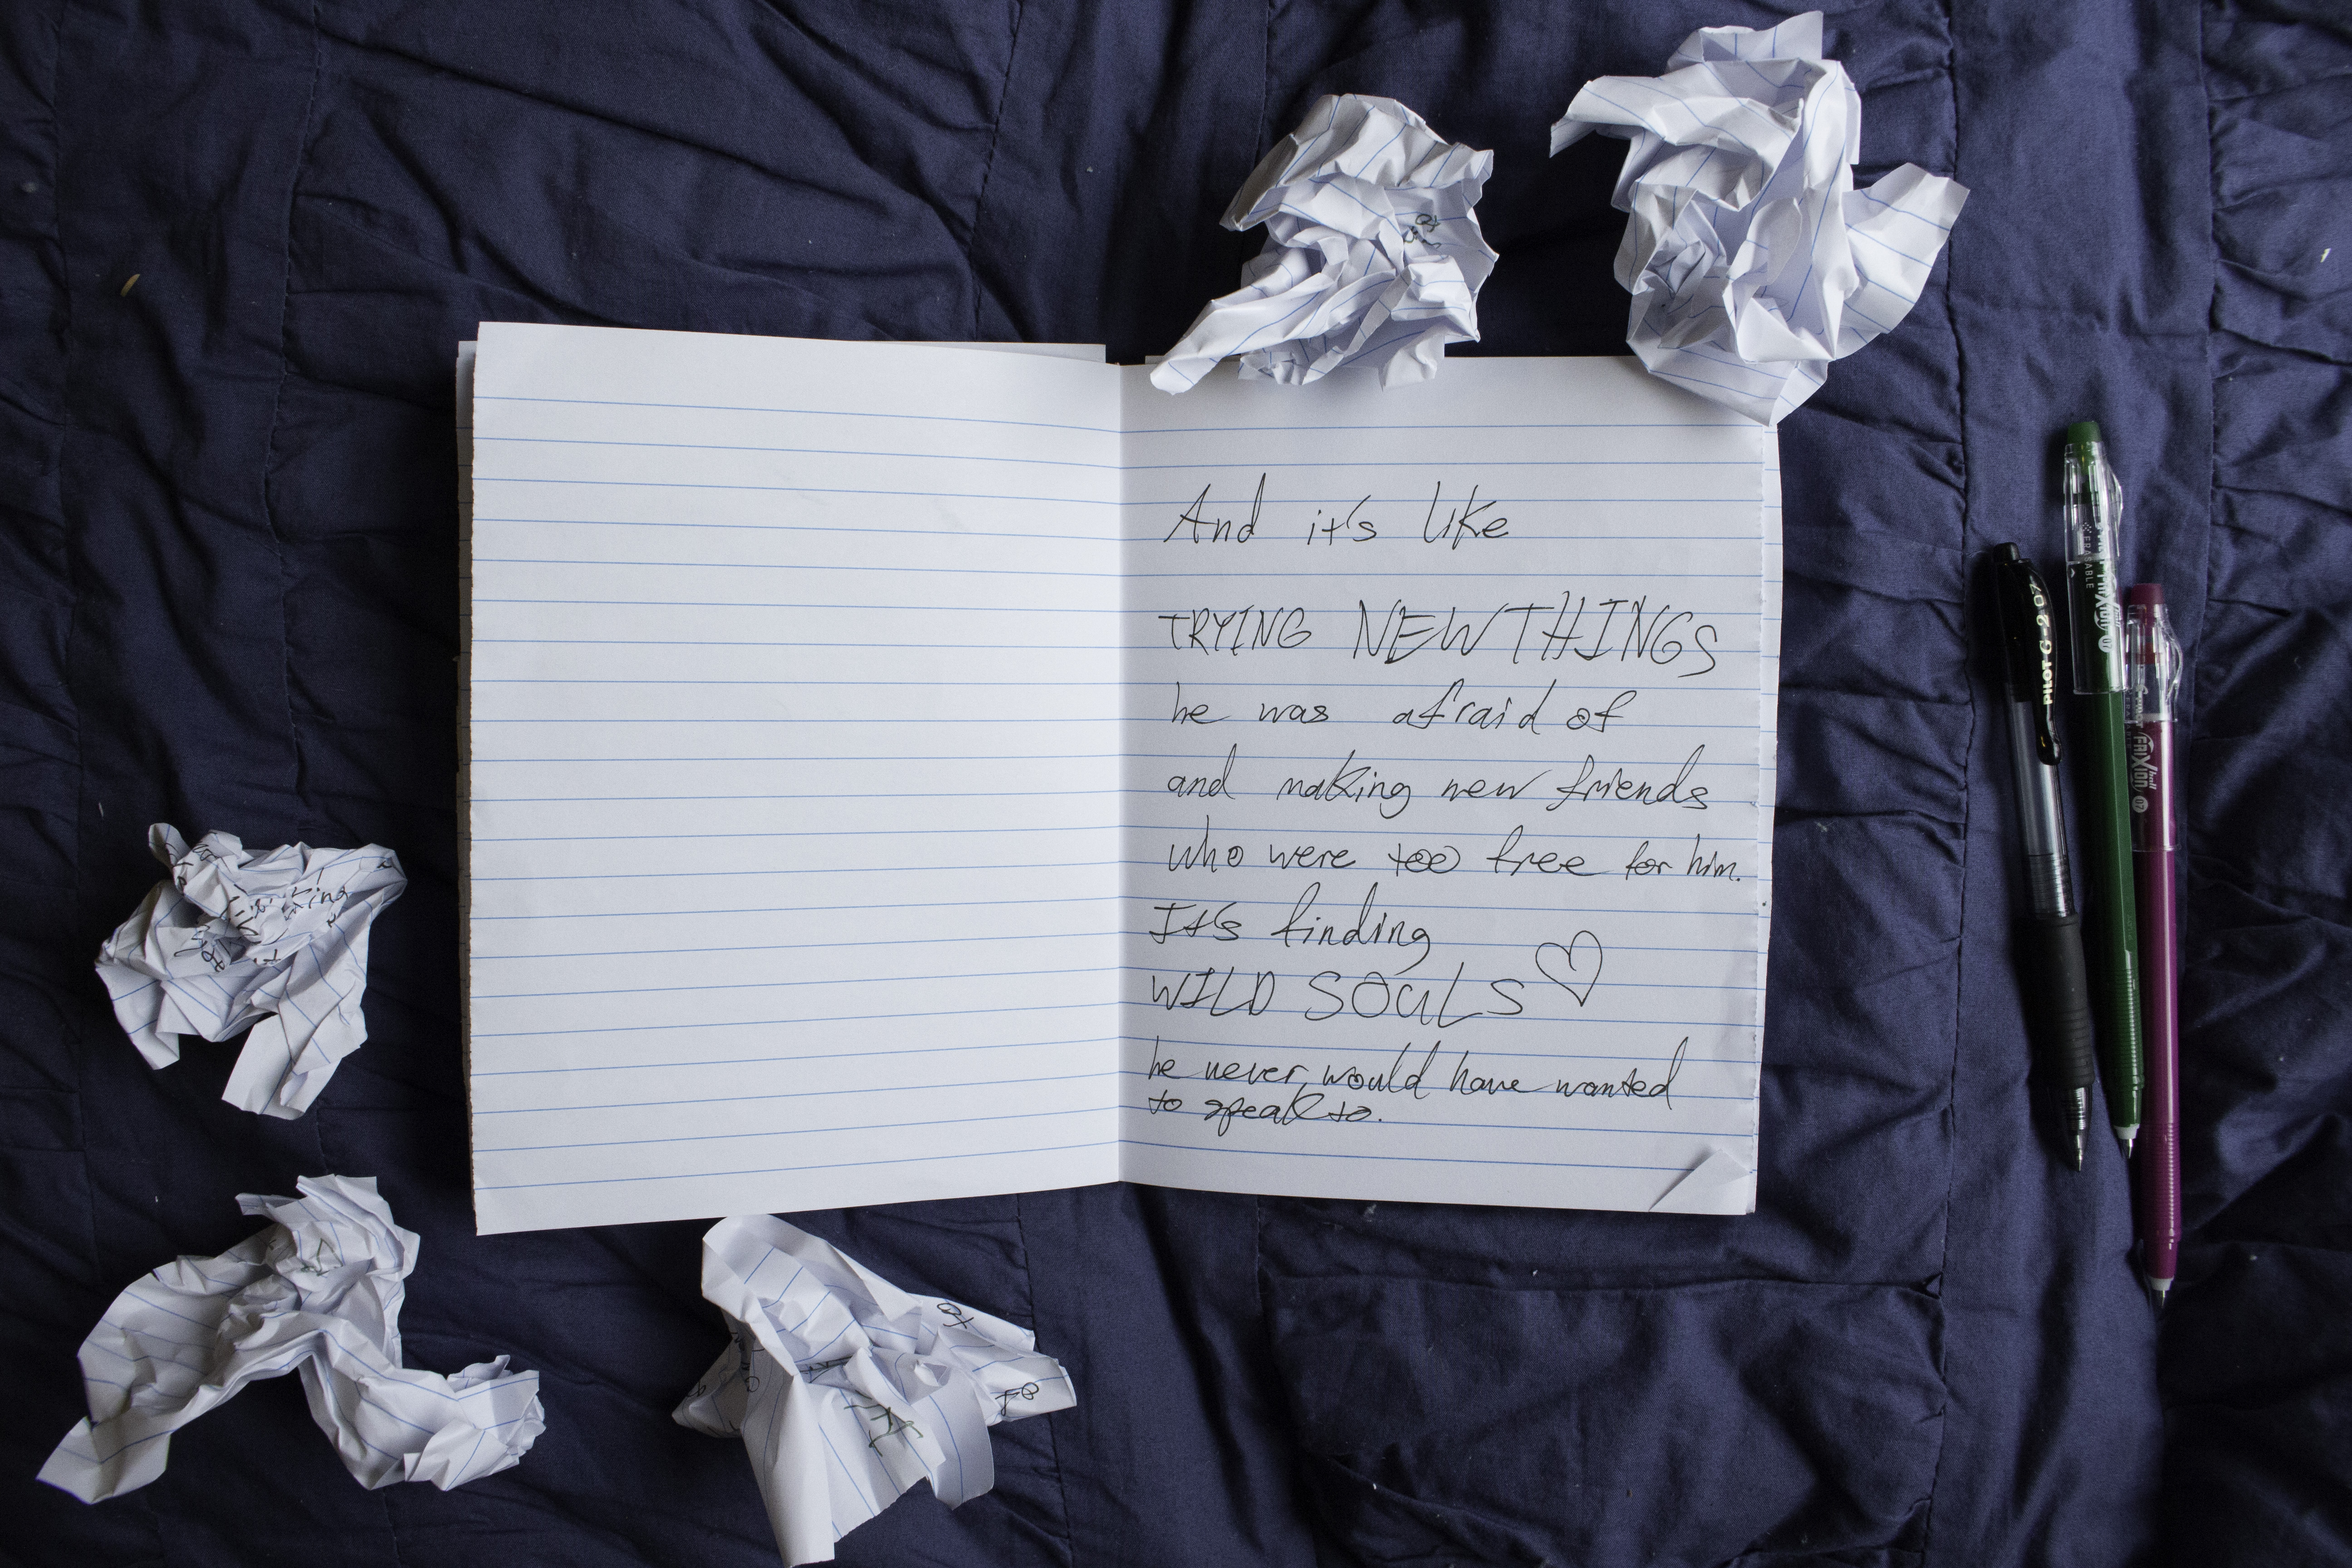 And it's like
TRYING NEW THINGS
he was afraid of
and making new friends
who were too free for him.
It's finding
WILD SOULS ♡
he never would have wanted
to speak to.
PILOT G-2 07
ERASABLE
FRIXION ball 07